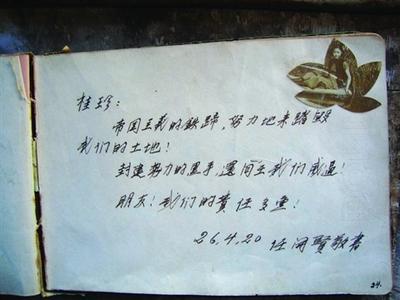 桂珍：
帝国主義的鉄蹄，努力地来踏毀
我们的土地！
封建势力的黑手，還我们威逼！
朋友！我们的責任多重！
26.4.20 任賢敬書
24.